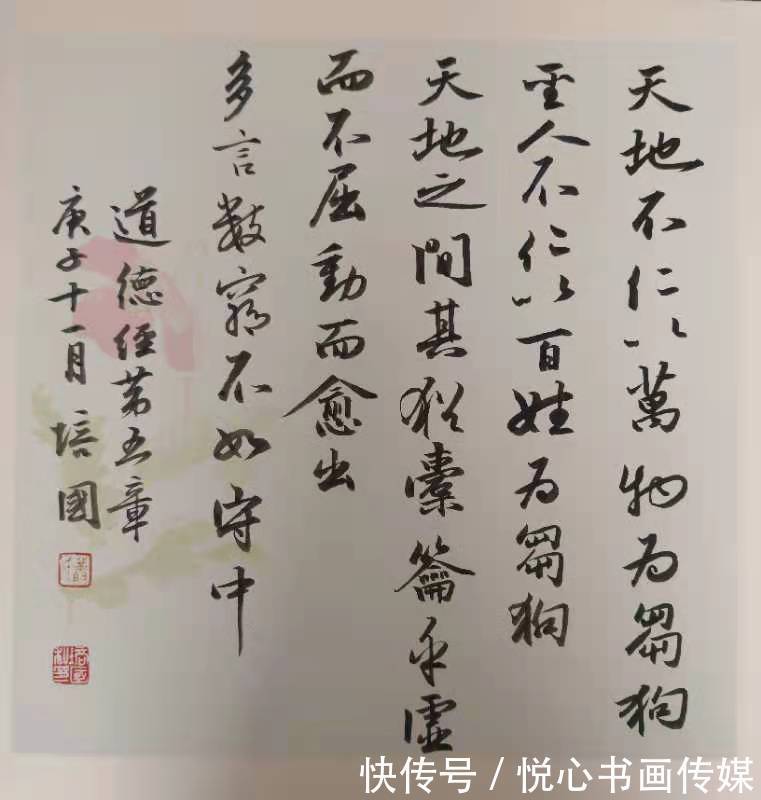 天地不仁以萬物为芻狗
圣人不仁以百姓为芻狗
天地之間其猶橐籥乎虛
而不屈動而愈出
多言數窮不如守中
道德經第五章
庚子十一月培國
快传号/悦心书画传媒